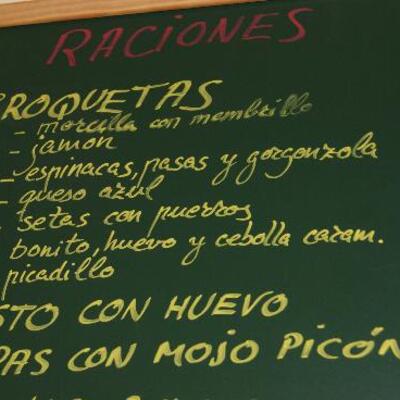 RACIONES
CROQUETAS
- morcilla con membrillo
- jamon
- espinacas, pasas y gorgonzola
- queso azul
- setas con puerros
bonito, huevo y cebolla caram.
picadillo
STO CON HUEVO
PAS CON MOJO PICÓN